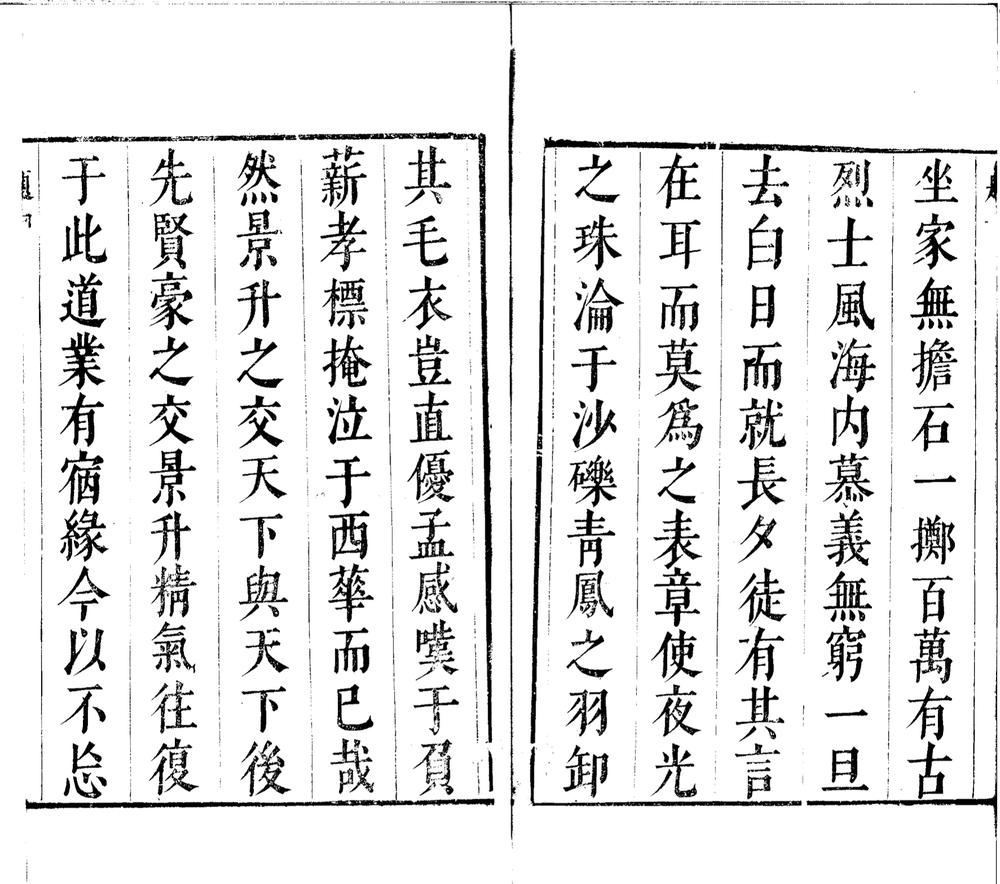 坐家無擔石一擲百萬有古
烈士風海内慕義無窮一旦
去白日而就長夕徒有其言
在耳而莫爲之表章使夜光
之珠淪于沙礫青鳳之羽卸
其毛衣豈直優孟感嘆于負
薪孝標掩泣于西華而已哉
然景升之交天下與天下後
先賢豪之交景升精氣往復
于此道業有宿緣今以不忘